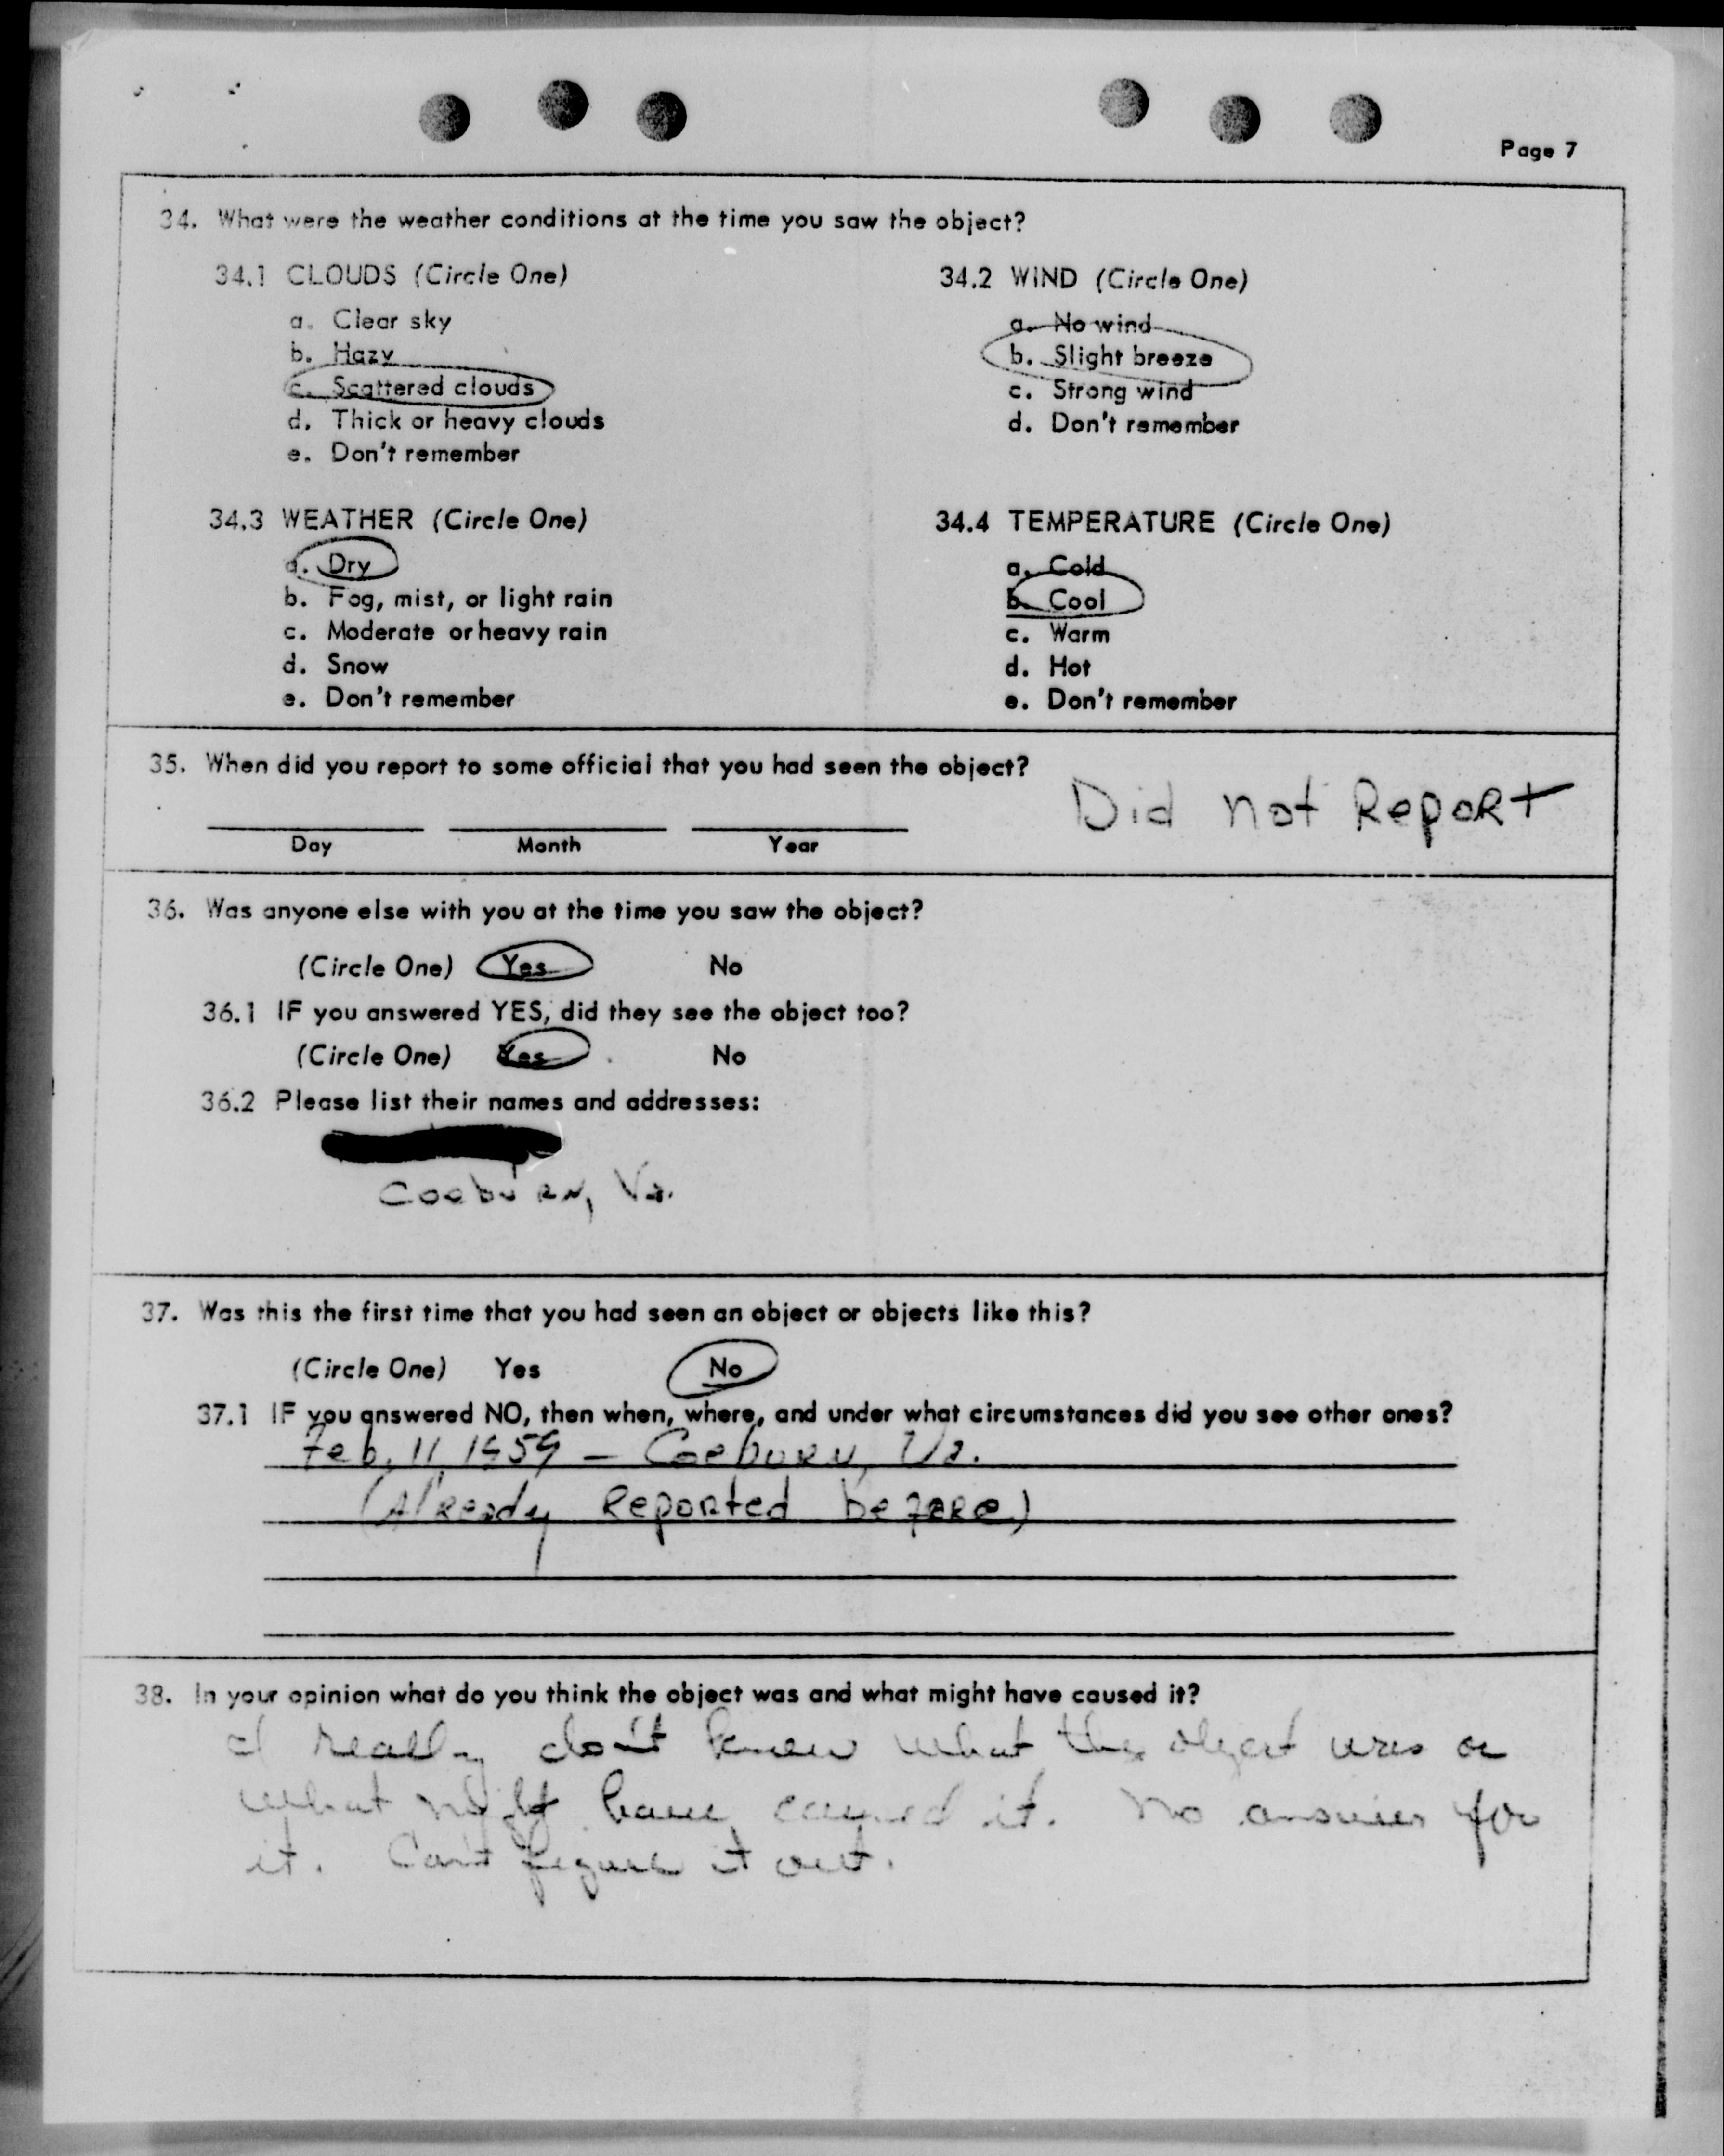 Page 7
34. What were the weather conditions at the time you saw the object?
34.1 CLOUDS (Circle One)
a. Clear sky
b. Hazy
c. Scattered clouds
d. Thick or heavy clouds
e. Don't remember
34.2 WIND (Circle One)
a. No wind
b. Slight breeze
c. Strong wind
d. Don't remember
34.3 WEATHER (Circle One)
a. Dry
b. Fog, mist, or light rain
c. Moderate or heavy rain
d. Snow
e. Don't remember
34.4 TEMPERATURE (Circle One)
a. Cold
b. Cool
c. Warm
d. Hot
e. Don't remember
35. When did you report to some official that you had seen the object?
Did not Report
Day Month Year
36. Was anyone else with you at the time you saw the object?
(Circle One) Yes No
36.1 IF you answered YES, did they see the object too?
(Circle One) Yes No
36.2 Please list their names and addresses:
Coeburn, Va.
37. Was this the first time that you had seen an object or objects like this?
(Circle One) Yes No
37.1 IF you answered NO, then when, where, and under what circumstances did you see other ones?
Feb. 11, 1959 - Coeburn, Va.
(Already Reported before)
38. In your opinion what do you think the object was and what might have caused it?
I really don't know what the object was or
what might have caused it. No answer for
it. Can't figure it out.